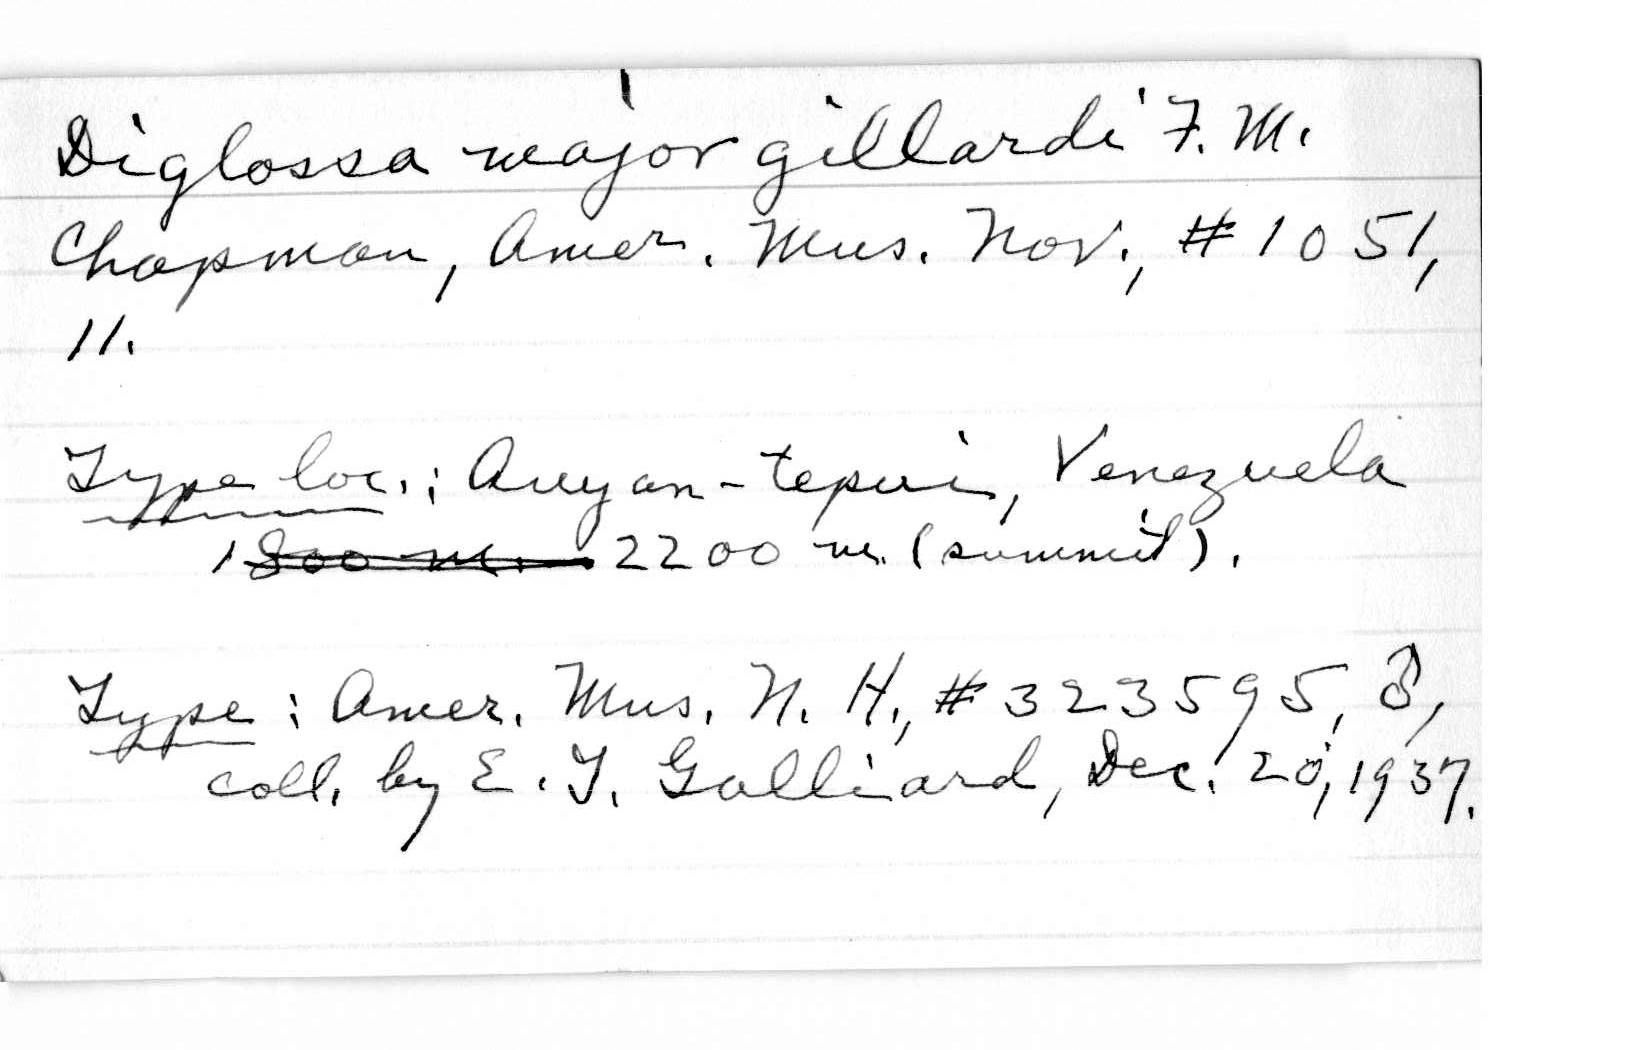 Diglossa major gillardi F. M.
Chapman, Amer. Mus. Nov., #1051,
11.
Type loc.: Auyan-tepui, Venezuela
1800 m. 2200 m. (summit).
Type: Amer. Mus. N. H., #323595, ♂,
coll. by E. T. Galliard, Dec. 20, 1937.